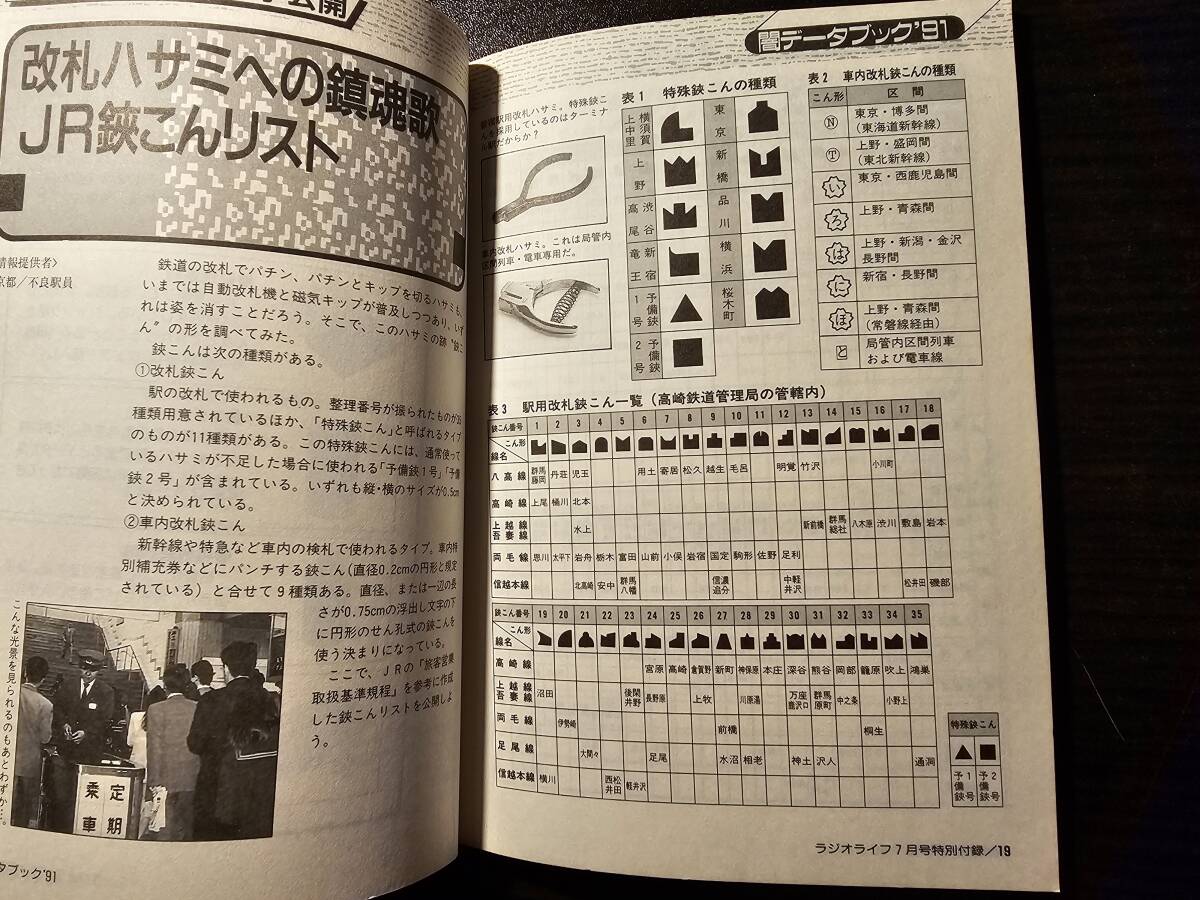 公開
改札ハサミへの鎮魂歌
JR鋏こんリスト
情報提供者>
京都/不良駅員
鉄道の改札でパチン、パチンとキップを切るハサミも、
いまでは自動改札機と磁気キップが普及しつつあり、いず
れは姿を消すことだろう。そこで、このハサミの跡“鋏こ
ん”の形を調べてみた。
鋏こんは次の種類がある。
①改札鋏こん
駅の改札で使われるもの。整理番号が振られたものが35
種類用意されているほか、「特殊鋏こん」と呼ばれるタイプ
のものが11種類がある。この特殊鋏こんには、通常使って
いるハサミが不足した場合に使われる「予備鋏1号」「予備
鋏2号」が含まれている。いずれも縦・横のサイズが0.5cm
と決められている。
②車内改札鋏こん
新幹線や特急など車内の検札で使われるタイプ。車内特
別補充券などにパンチする鋏こん(直径0.2cmの円形と規定
されている)と合せて9種類ある。直径、または一辺の長
さが0.75cmの浮出し文字の下
に円形のせん孔式の鋏こんを
使う決まりになっている。
ここで、JRの「旅客営業
取扱基準規程」を参考に作成
した鋏こんリストを公開しよ
う。
こんな光景を見られるのもあとわずか…。
乗車
定期
タブック'91
闇データブック'91
駅用改札ハサミ。特殊鋏こ
んを採用しているのはターミナ
ル駅だからか?
車内改札ハサミ。これは局管内
区間列車・電車専用だ。
表1 特殊鋏こんの種類
横須賀
上中里
東京
上野
新橋
渋谷
高尾
品川
新宿
竜王
横浜
予備鋏
1号
桜木町
予備鋏
2号
表2 車内改札鋏こんの種類
こん形 区間
N 東京・博多間
(東海道新幹線)
T 上野・盛岡間
(東北新幹線)
い 東京・西鹿児島間
ろ 上野・青森間
は 上野・新潟・金沢
長野間
に 新宿・長野間
ほ 上野・青森間
(常磐線経由)
と 局管内区間列車
および電車線
表3 駅用改札鋏こん一覧(高崎鉄道管理局の管轄内)
鋏こん番号 1 2 3 4 5 6 7 8 9 10 11 12 13 14 15 16 17 18
こん形
線名
八高線 群馬藤岡 丹荘 児玉 用土 寄居 松久 越生 毛呂 明覚 竹沢 小川町
高崎線 上尾 桶川 北本
上越線 吾妻線 水上 新前橋 群馬総社 八木原 渋川 敷島 岩本
両毛線 思川 太平下 岩舟 栃木 富田 山前 小俣 岩宿 国定 駒形 佐野 足利
信越本線 北高崎 安中 群馬八幡 信濃追分 中軽井沢 松井田 磯部
鋏こん番号 19 20 21 22 23 24 25 26 27 28 29 30 31 32 33 34 35
こん形
線名
高崎線 宮原 高崎 倉賀野 新町 神保原 本庄 深谷 熊谷 岡部 籠原 吹上 鴻巣
上越線 吾妻線 沼田 後閑 長野原 上牧 川原湯 万座鹿沢口 群馬原町 中之条 小野上
両毛線 伊勢崎 前橋 桐生
足尾線 大間々 足尾 水沼 相老 神土 沢入 通洞
信越本線 横川 西松井田 軽井沢
特殊鋏こん
予備鋏1号
予備鋏2号
ラジオライフ7月号特別付録/19